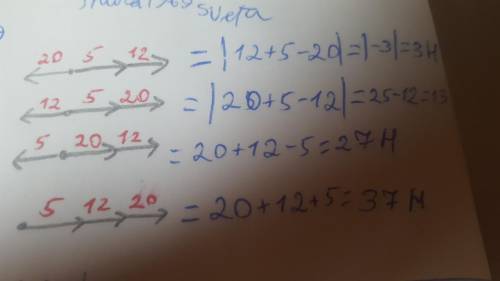 sveta
20 5 12 = |12+5-20|=|-3|=3H
12 5 20 = |20+5-12|=25-12=13
5 20 12 = 20+12-5=27H
5 12 20 = 20+12+5=37H